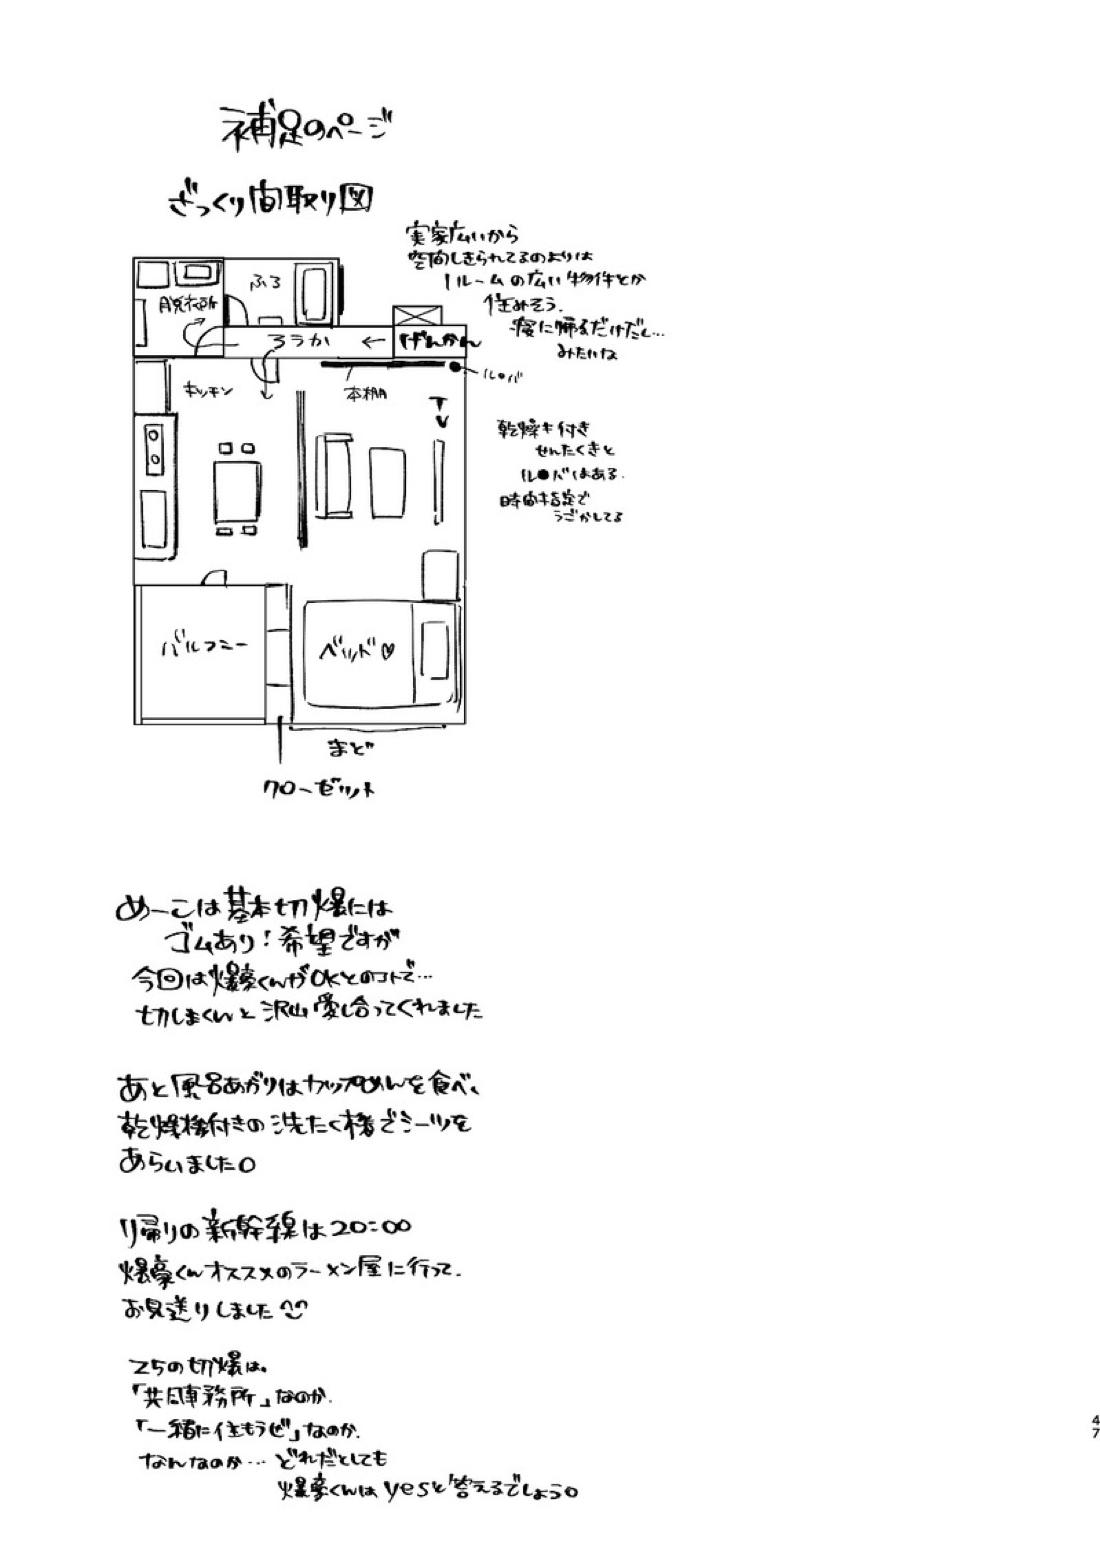 補足のページ
ざっくり間取り図
実家広いから
空間しきられてるのよりは
1ルームの広い物件とか
住みそう.
寝に帰るだけだし…
みたいな
ふろ
脱衣所
ろうか
←
げんかん
キッチン
本棚
ル●バ
TV
乾燥キ付き
せんたくきと
ル●バはある.
時間指定で
うごかしてる
バルコニー
ベッド♡
まど
クローゼット
めーこは基本切爆には
ゴムあり!希望ですが
今回は爆豪くんがOKとのコトで…
切しまくんと沢山愛し合ってくれました
あと風呂あがりはカップめんを食べ、
乾燥機付きの洗たく機でシーツを
あらいました。
帰りの新幹線は20:00
爆豪くんオススメのラーメン屋に行って.
お見送りしました^^
25の切爆は.
「共同事務所」なのか.
「一緒に住もうぜ」なのか.
なんなのか…どれだとしても
爆豪くんはyesと答えるでしょう。
47